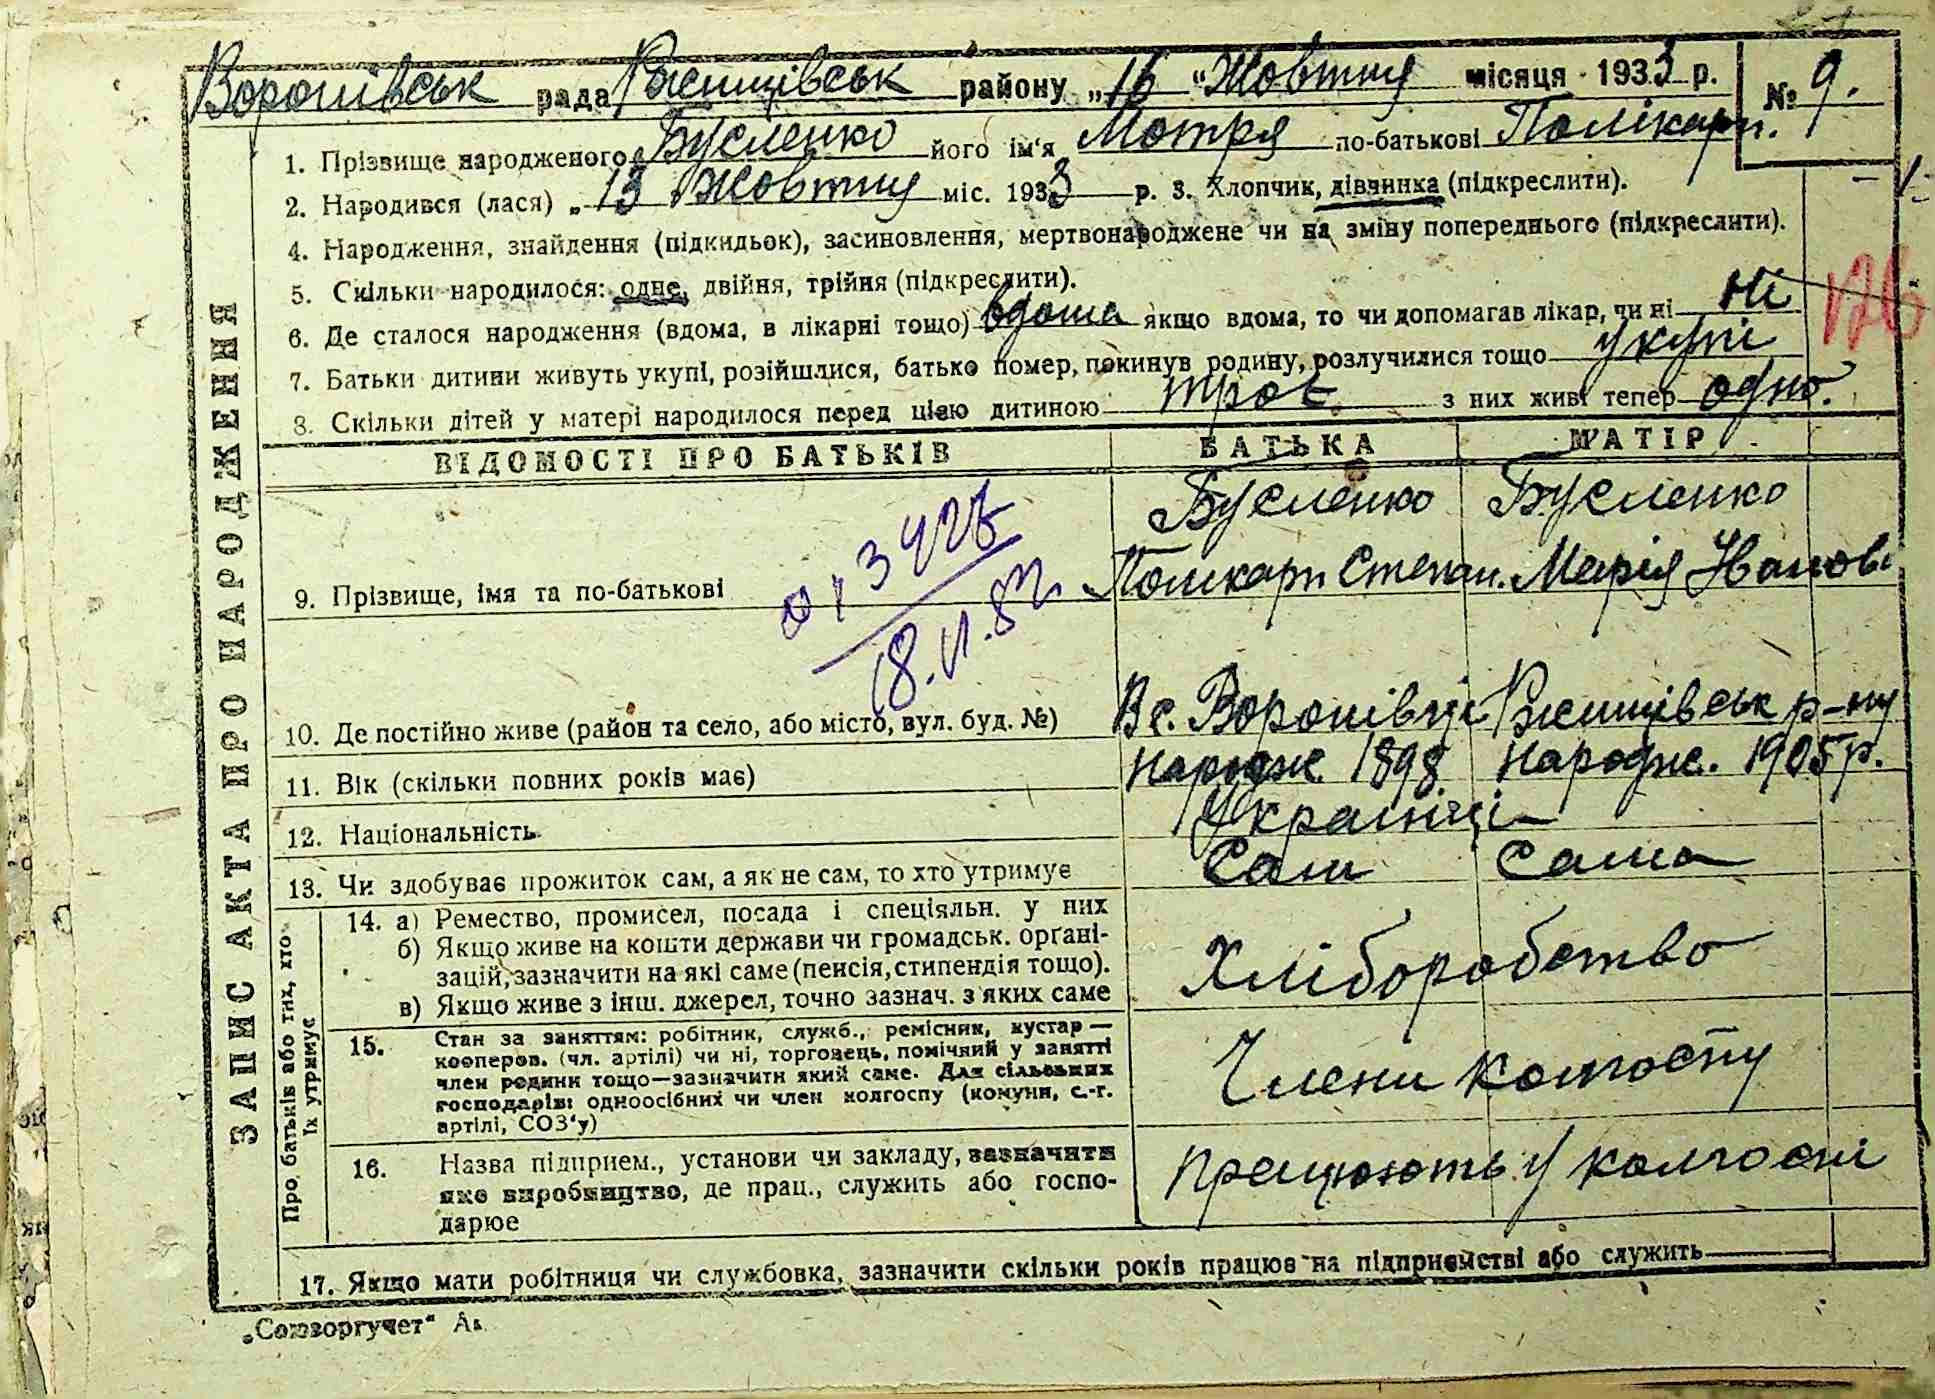 Воронівськ рада Ржищівськ району „16 “ Жовтня місяця 1933 р. № 9.
1. Прізвище народженого Бусленко його ім'я Мотря по-батькові Полікарп.
2. Народився (лася) „ 13 Жовтня міс. 1933 р. 3. Хлопчик, дівчинка (підкреслити).
4. Народження, знайдення (підкидьок), засиновлення, мертвонароджене чи на зміну попереднього (підкреслити).
5. Скільки народилося: одне, двійня, трійня (підкреслити).
6. Де сталося народження (вдома, в лікарні тощо) вдома якщо вдома, то чи допомагав лікар, чи ні ні
7. Батьки дитини живуть укупі, розійшлися, батько помер, покинув родину, розлучилися тощо укупі
8. Скільки дітей у матері народилося перед цією дитиною троє з них живі тепер одно.
ЗАПИС АКТА ПРО НАРОДЖЕННЯ
ВІДОМОСТІ ПРО БАТЬКІВ БАТЬКА МАТІР
Бусленко Бусленко
9. Прізвище, імя та по-батькові Полікарп Степан. Марія Іванов.
10. Де постійно живе (район та село, або місто, вул. буд. №) В с. Воронівці Ржищівськ р-ну
11. Вік (скільки повних років має) народж. 1898 народж. 1905 р.
12. Національність Українці
13. Чи здобуває прожиток сам, а як не сам, то хто утримує Сам Сама
Про батьків або тих, хто їх утримує
14. а) Ремество, промисел, посада і спеціяльн. у них
б) Якщо живе на кошти держави чи громадськ. орґані-
зацій, зазначити на які саме (пенсія, стипендія тощо). Хліборобство
в) Якщо живе з інш. джерел, точно зазнач. з яких саме
15. Стан за заняттям: робітник, служб., ремісник, кустар —
кооперов. (чл. артілі) чи ні, торговець, помічний у занятті
член родини тощо—зазначити який саме. Для сільських Члени колгоспу
господарів: одноосібних чи член колгоспу (комуни, с.-г.
артілі, СОЗ'у)
16. Назва підприєм., установи чи закладу, зазначити
яке виробництво, де прац., служить або госпо- працюють у колгоспі
дарює
17. Якщо мати робітниця чи службовка, зазначити скільки років працює на підприємстві або служить
„Союзоргучет“